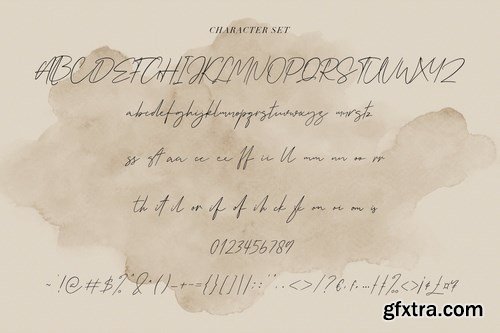 CHARACTER SET
ABCDEFGHIJKLMNOPQRSTUVWXYZ
abcdefghijklmnopqrstuvwxyz
ss aa cc ee ff ii ll mm nn oo rr
th it il or if of ih ck fe on oi om is
0123456789
gfxtra.com